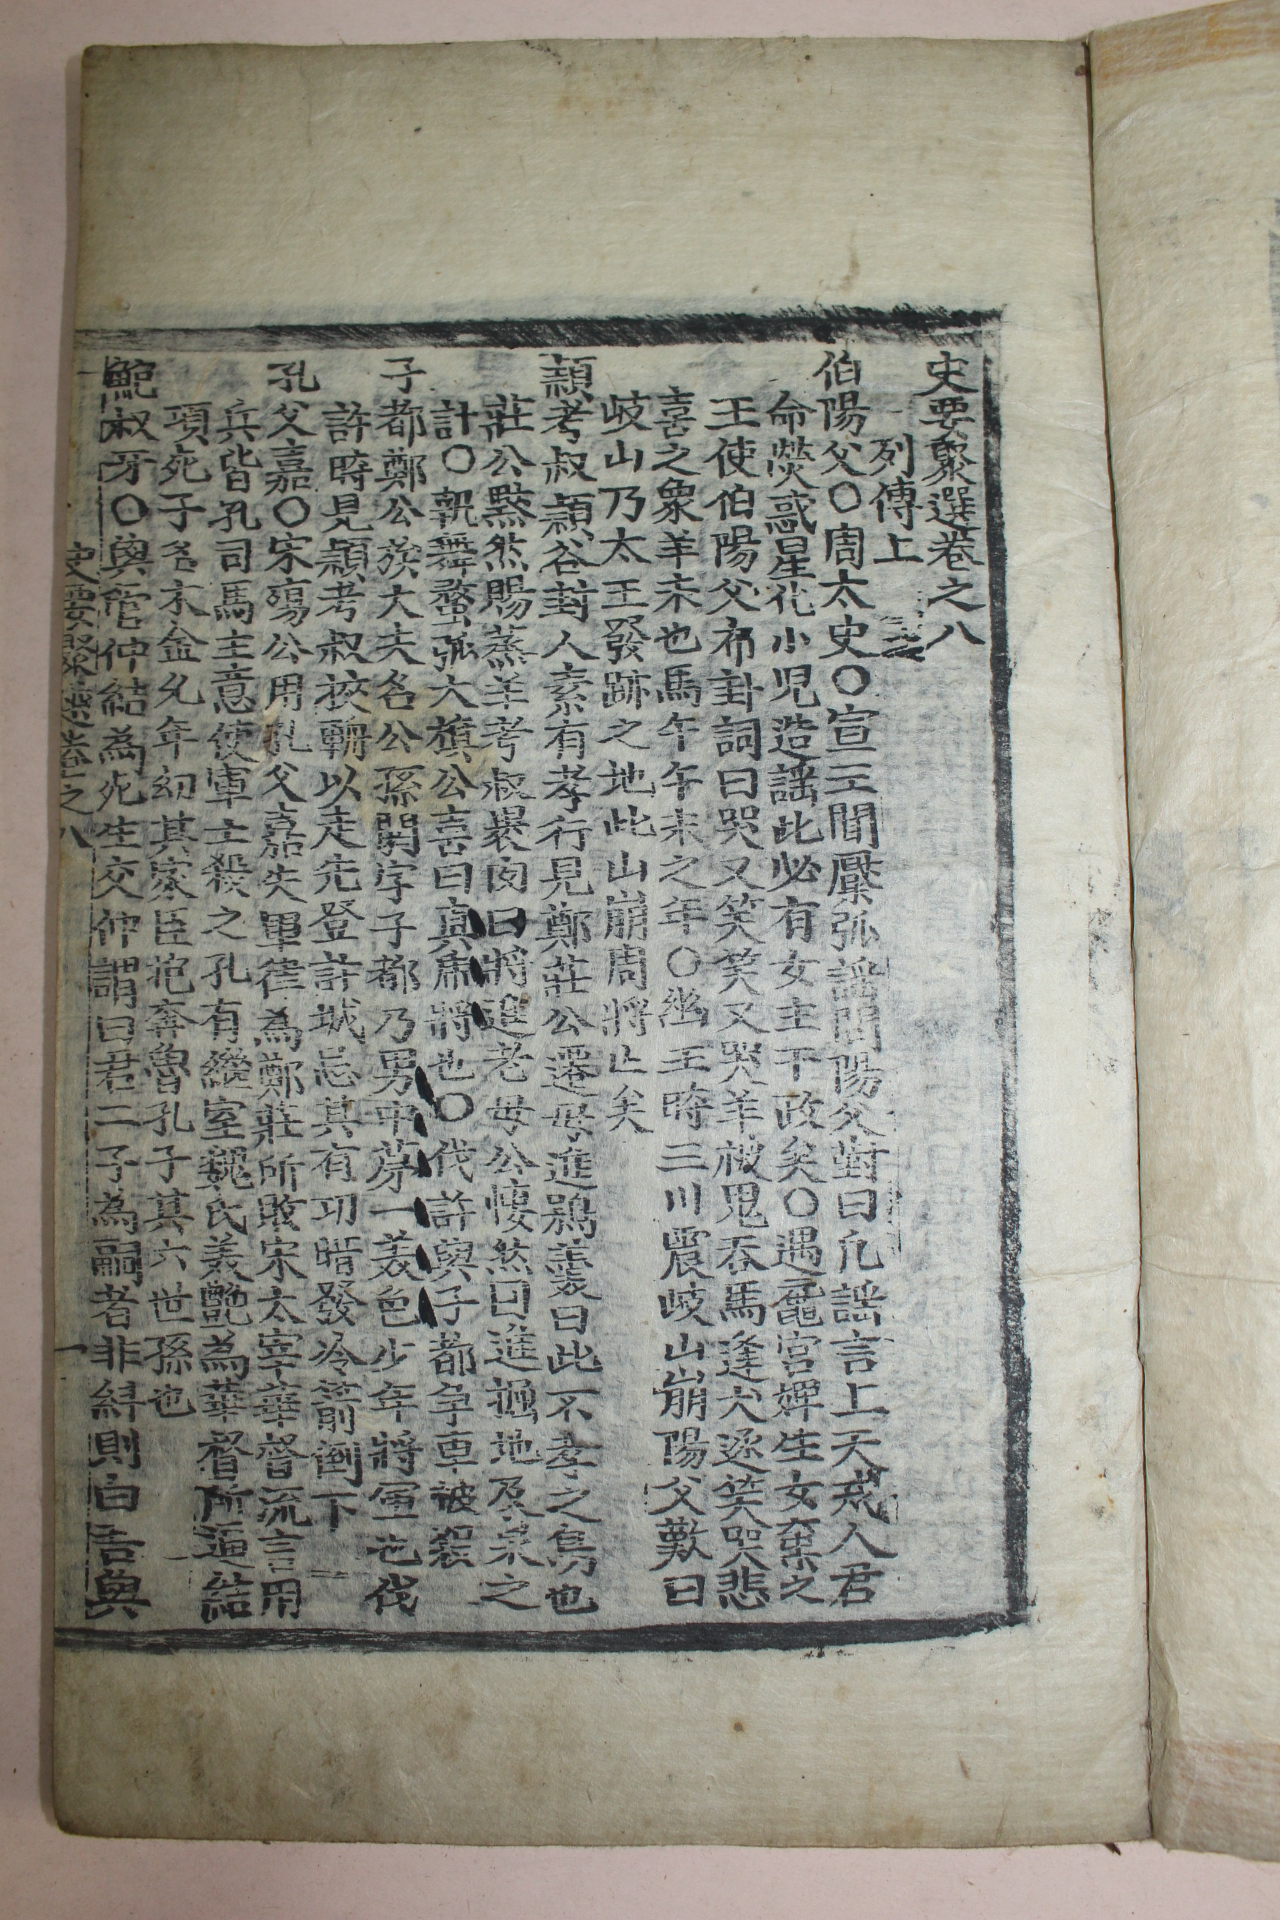 史要聚選卷之八
列傳上
伯陽父〇周太史〇宣王聞檿弧謠問陽父對曰凡謠言上天戒人君
命熒惑星化小児造謠此必有女主干政矣〇遇黿宮婢生女棄之
王使伯陽父布卦詞曰哭又笑笑又哭羊被鬼吞馬逢犬逐笑哭悲
喜之象羊未也馬午午未之年〇幽王時三川震岐山崩陽父歎曰
岐山乃太王發跡之地此山崩周將亡矣
頴考叔頴谷封人素有孝行見鄭莊公遷母進鴞羹曰此不孝之鳥也
莊公黙然賜蒸羊考叔裹肉曰將進老母公悽然曰進掘地及泉之
計〇執舞蝥弧大旗公喜曰真席將也〇伐許與子都爭車被殺
子都鄭公族大夫名公孫閼字子都乃男中第一美色少年將軍也伐
許時見頴考叔挾輈以走先登許城忌其有功暗發冷箭倒下
孔父嘉〇宋殤公用孔父嘉失軍律為鄭莊所敗宋太宰華督流言用
兵皆孔司馬主意使軍士殺之孔有繼室魏氏美艶為華督所逼結
項死子名木金父年幼其家臣抱奔魯孔子其六世孫也
鮑叔牙〇與管仲結為死生交仲謂曰君二子為嗣者非糾則白吾與
史要聚選卷之八
一